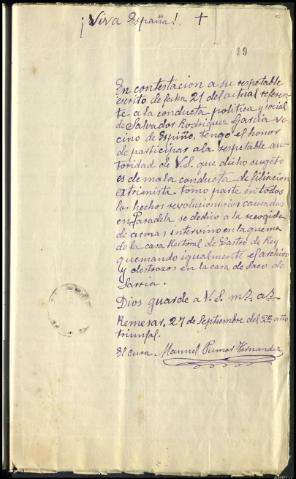 ¡Viva España! +
19
En contestación a su respetable
escrito de fecha 21 del actual referen-
te a la conducta politica y social
de Salvador Rodriguez Garcia ve-
cino de Espiño, tengo el honor
de participar a la respetable au-
toridad de V.S. que dicho sugeto
es de mala conducta de filiación
extremista tomo parte en todos
los hechos revolucionarios causados
en Paradela se dedico a la recogida
de armas intervino en la quema
de la casa Rectoral de Castro de Rey
quemando igualmente el archivo
y destrozos en la casa de Saco de
Sarria.
Dios guarde a V.S. ms. as.
Remesar, 27 de Septiembre del 2º año
triunfal.
El cura. Manuel Hernandez